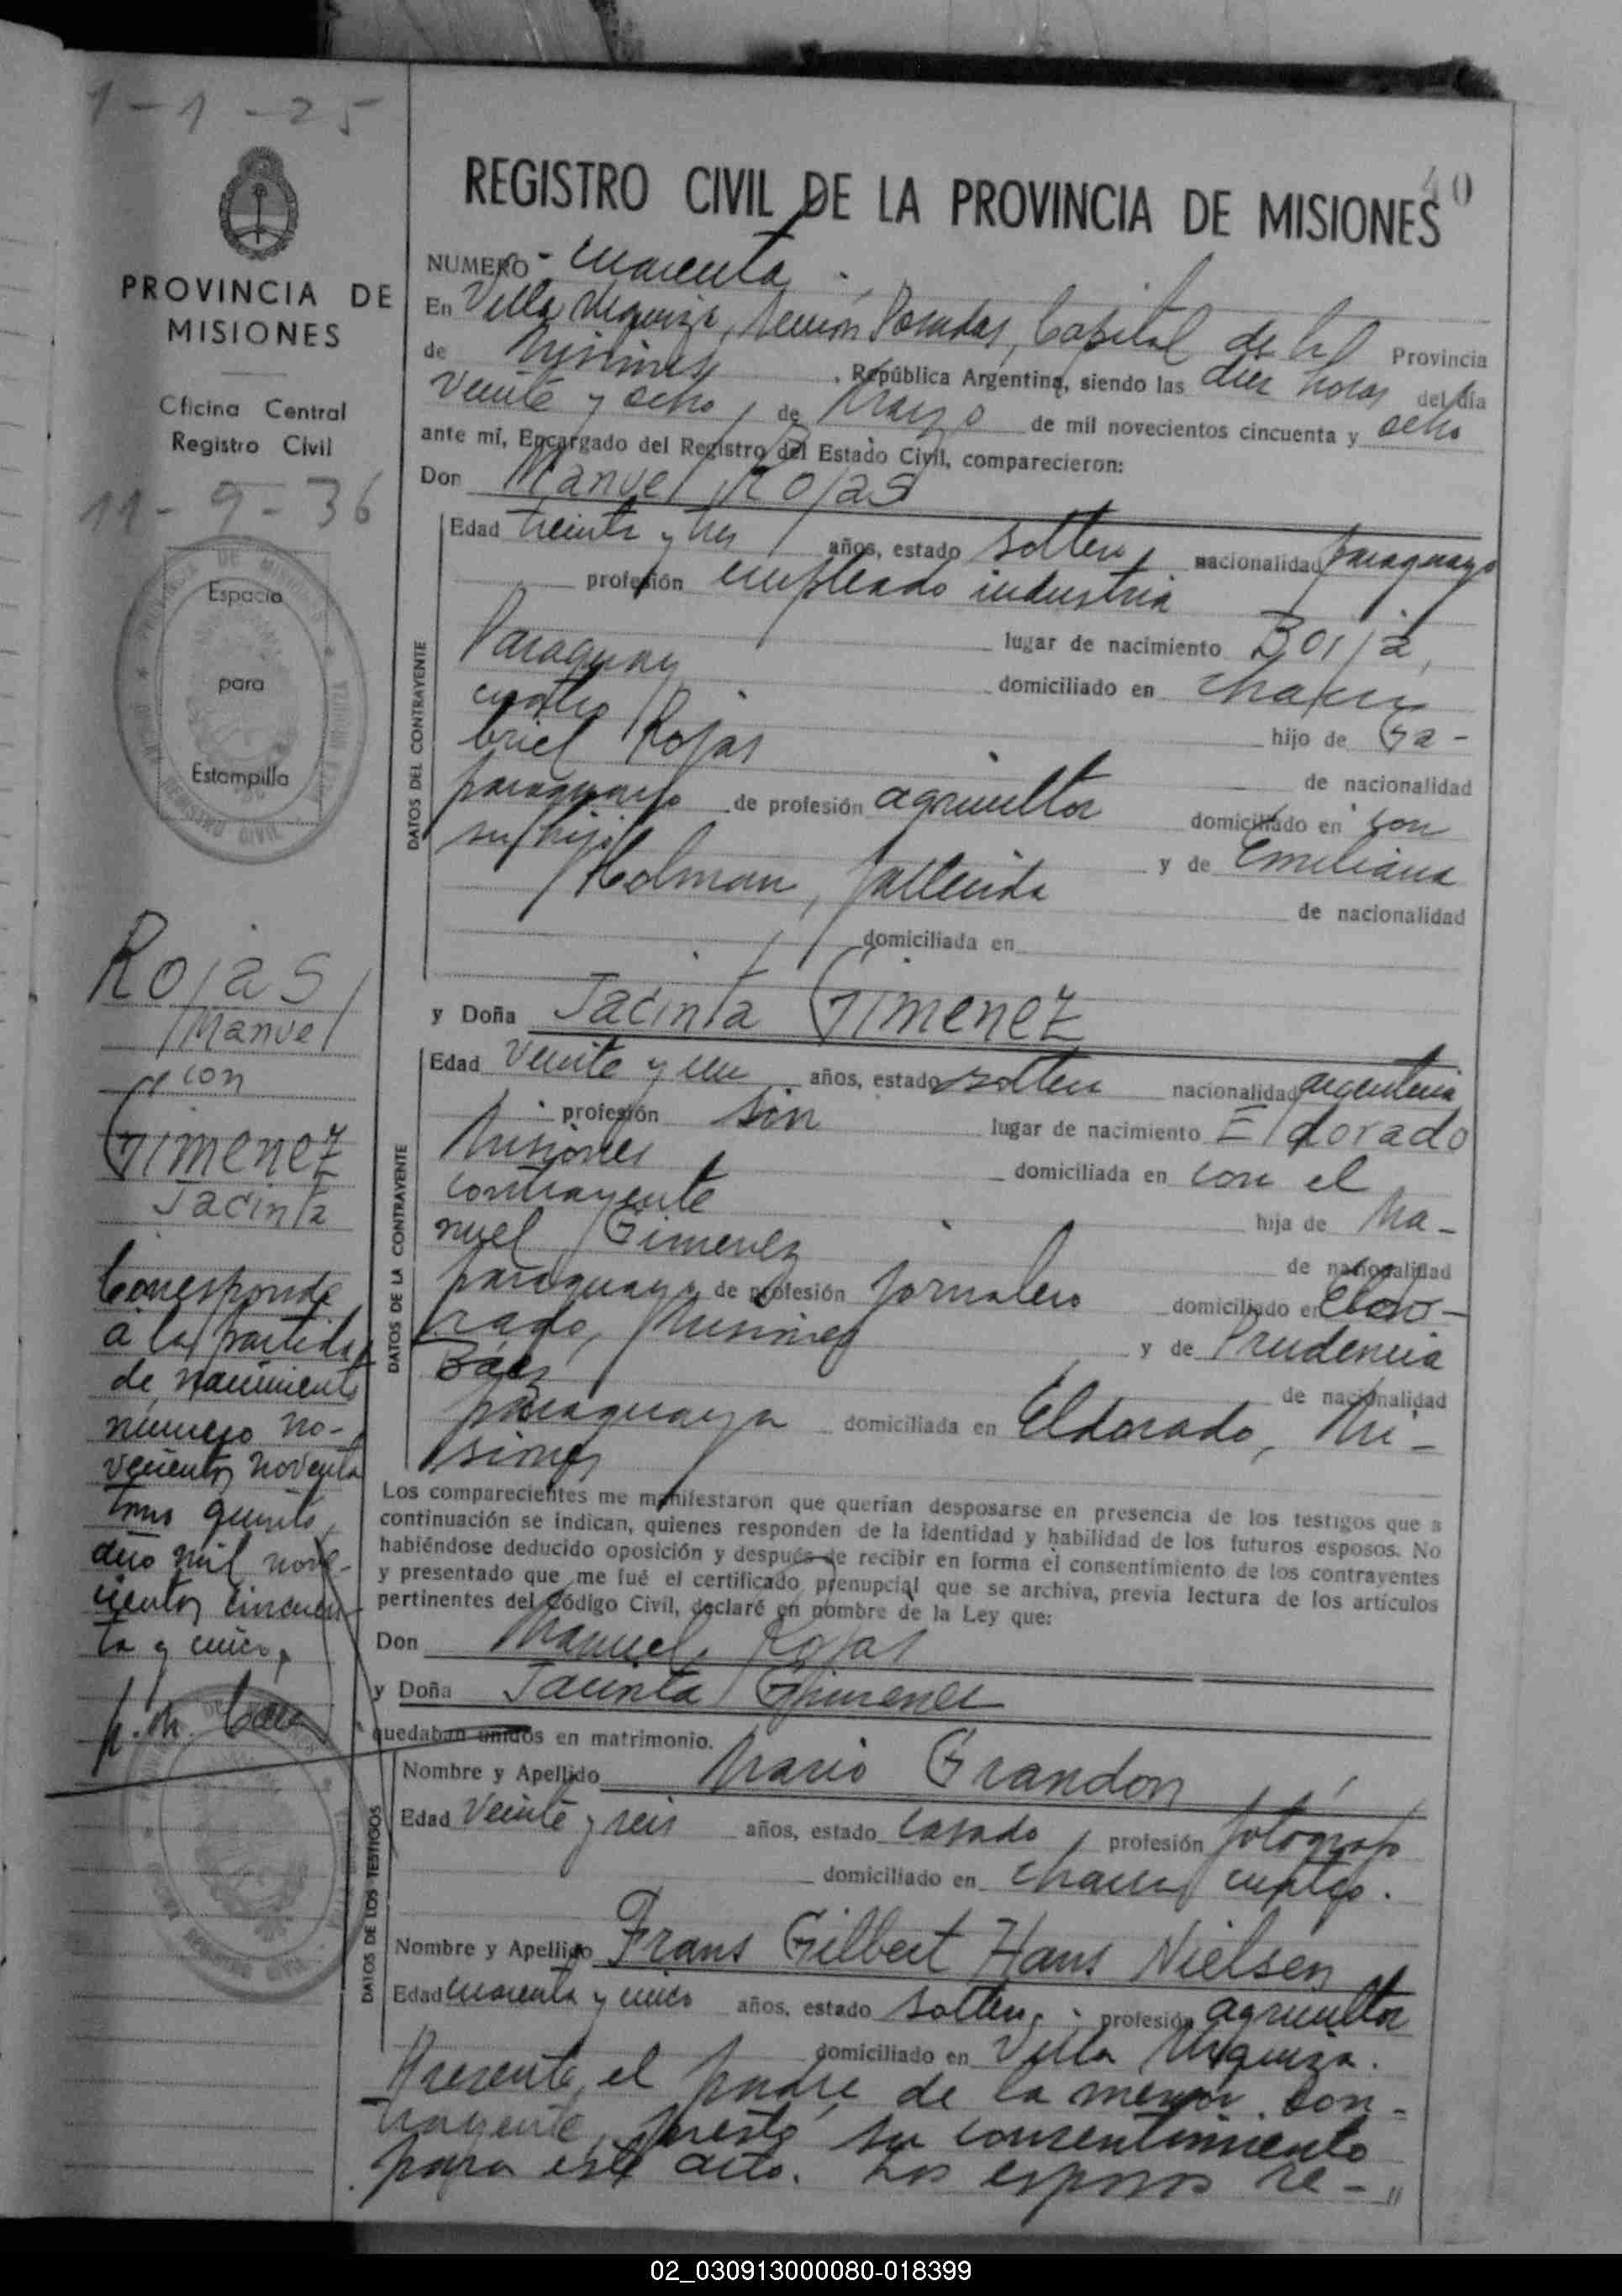 1-1-25
PROVINCIA DE
MISIONES
Oficina Central
Registro Civil
11-9-36
Espacio
para
Estampilla
Rojas
Manuel
con
Gimenez
Jacinta
Corresponde
a la partida
de nacimiento
número no-
vecientos noventa
tomo quinto,
año mil nove-
cientos cincuen-
ta y cinco,
40
REGISTRO CIVIL DE LA PROVINCIA DE MISIONES
NUMERO - cuarenta -
En Villa Urquiza, Sección Posadas, Capital de la Provincia
de Misiones, República Argentina, siendo las diez horas del día
veinte y ocho, de Marzo de mil novecientos cincuenta y ocho
ante mí, Encargado del Registro del Estado Civil, comparecieron:
Don Manuel Rojas
DATOS DEL CONTRAYENTE
Edad treinta y tres años, estado soltero, nacionalidad paraguayo
profesión empleado industria
lugar de nacimiento Borja,
Paraguay domiciliado en chacra
cuatro hijo de Ga-
briel Rojas de nacionalidad
paraguayo de profesión agricultor domiciliado en con
su hijo y de Emiliana
Holman, fallecida de nacionalidad
domiciliada en
y Doña Jacinta Gimenez
DATOS DE LA CONTRAYENTE
Edad veinte y un años, estado soltera nacionalidad argentina
profesión sin lugar de nacimiento Eldorado
Misiones domiciliada en con el
contrayente hija de Ma-
nuel Gimenez de nacionalidad
paraguaya de profesión jornalero domiciliado en Eldo-
rado, Misiones y de Prudencia
Báez de nacionalidad
paraguaya domiciliada en Eldorado, Mi-
siones
Los comparecientes me manifestaron que querían desposarse en presencia de los testigos que a
continuación se indican, quienes responden de la identidad y habilidad de los futuros esposos. No
habiéndose deducido oposición y después de recibir en forma el consentimiento de los contrayentes
y presentado que me fué el certificado prenupcial que se archiva, previa lectura de los artículos
pertinentes del Código Civil, declaré en nombre de la Ley que:
Don Manuel Rojas
y Doña Jacinta Gimenez
quedaban unidos en matrimonio.
DATOS DE LOS TESTIGOS
Nombre y Apellido Mario Grandon
Edad veinte y seis años, estado casado, profesión fotógrafo
domiciliado en chacra cuatro.
Nombre y Apellido Frans Gilbert Hans Nielsen
Edad cuarenta y cinco años, estado soltero, profesión agricultor
domiciliado en Villa Urquiza.
Presente el padre de la menor con-
trayente, presta su consentimiento
para este acto. Los esposos re-"
02_030913000080-018399